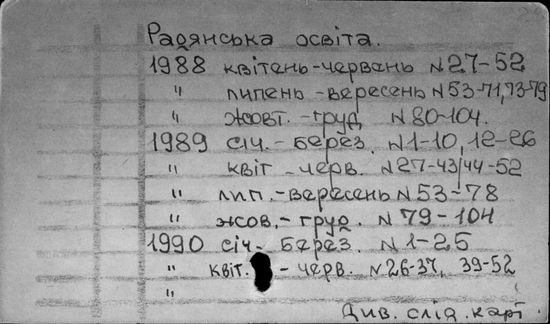 Радянська освіта.
1988 квітень-червань N27-52
" липень-вересень N53-71,73-79
" жовт.-груд N80-104.
1989 січ.-берез. N1-10, 12-26
" квіт-черв. N27-43/44-52
" лип.-вересень N53-78
" жов.-груд. N79-104
1990 січ-берез. N1-25
" квіт. -черв. N26-37, 39-52
"
Див. слід. карт